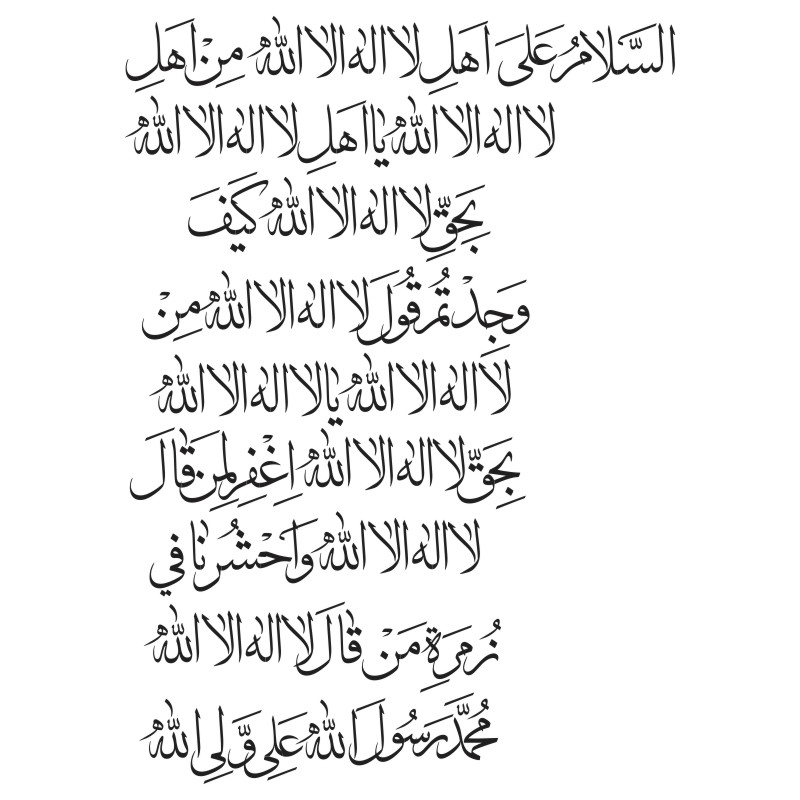 السَّلامُ عَلىَ اَهلِ لا اله الا اللهُ مِنْ اَهلِ
لا اله الا اللهُ يا اَهلِ لا اله الا اللهُ
بِحَقِّ لا اله الا اللهُ كَيفَ
وَجَدْتُم قُولَ لا اله الا اللهُ مِنْ
لا اله الا اللهُ يا لا اله الا اللهُ
بِحَقِّ لا اله الا اللهُ اِغْفِر لِمَن قالَ
لا اله الا اللهُ وَاحْشُرنا في
زُمرَةِ مَنْ قالَ لا اله الا اللهُ
مُحَمَّدَ رَسُولَ اللهُ عَلي وَّلي اللهُ